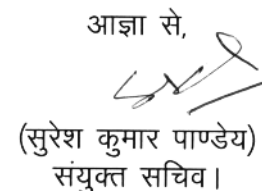 आज्ञा से,
(सुरेश कुमार पाण्डेय)
संयुक्त सचिव।